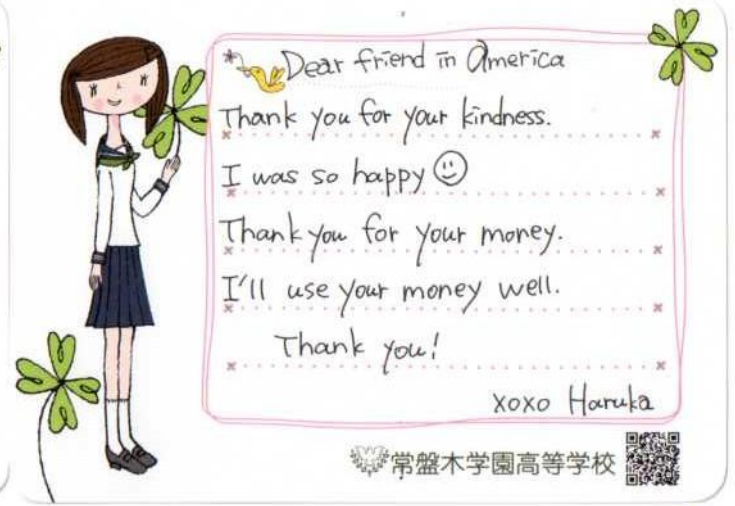 Dear friend in America
Thank you for your kindness.
I was so happy
Thank you for your money.
I'll use your money well.
Thank you!
xoxo Haruka
常盤木学園高等学校